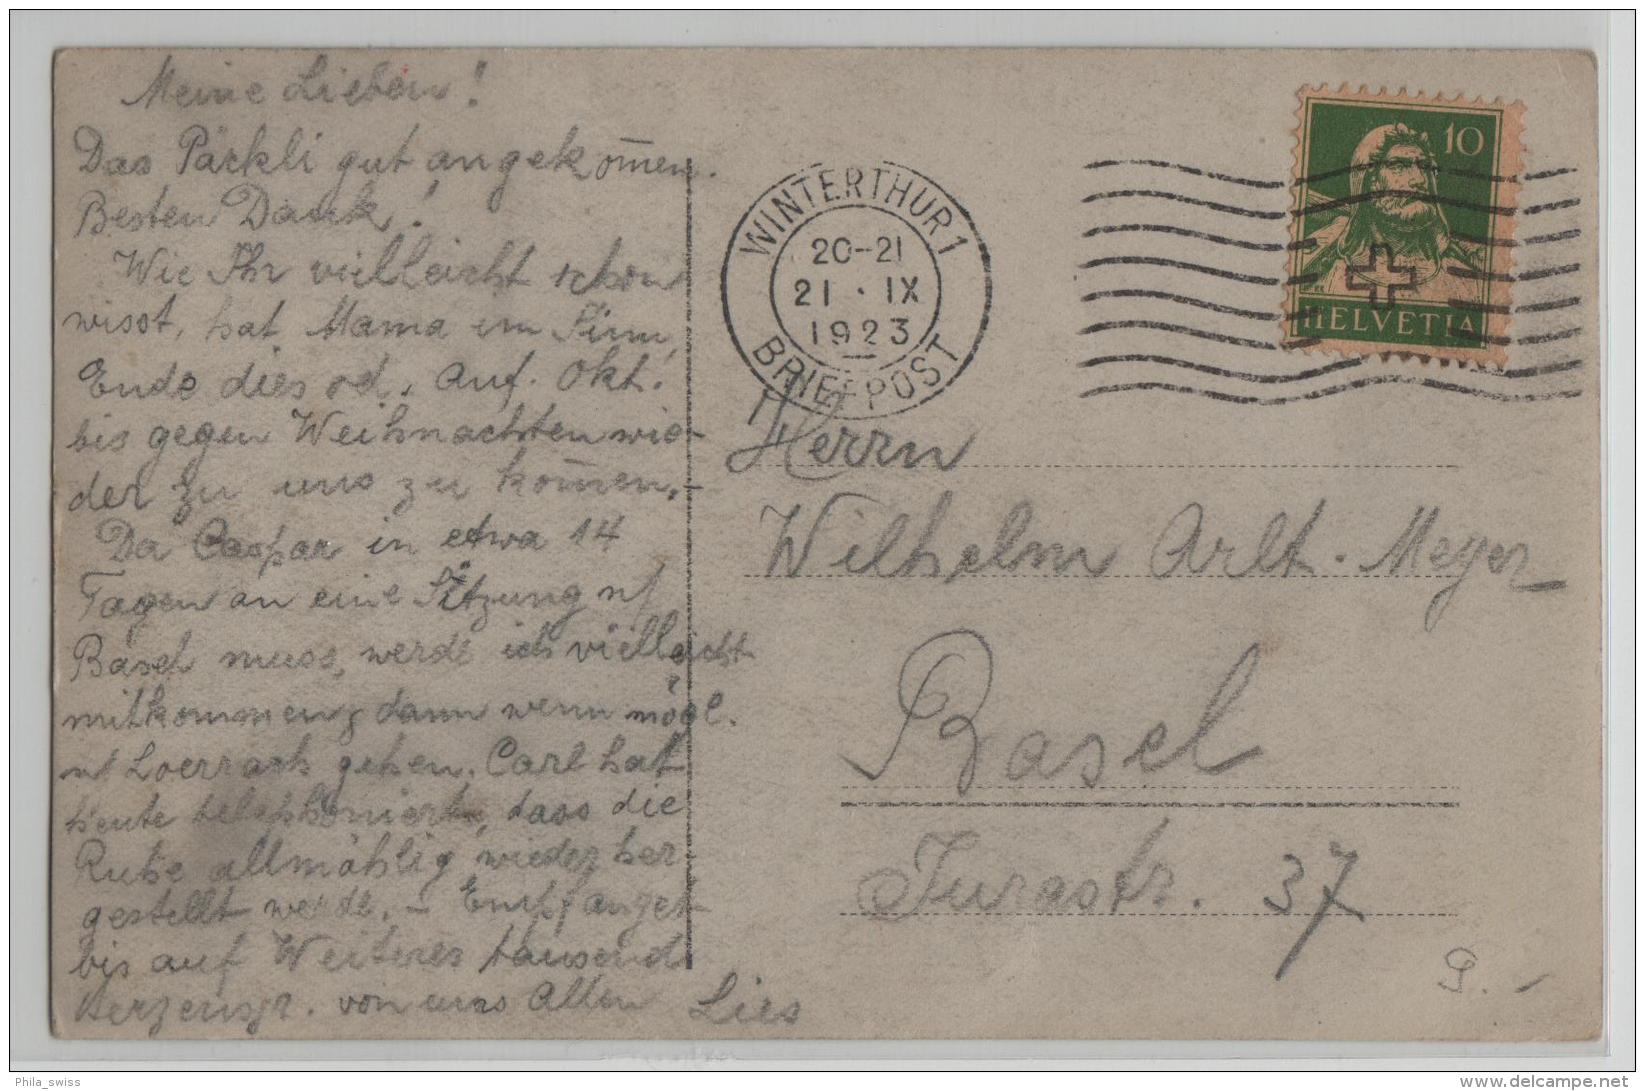 Meine Lieben!
Das Päckli gut angekom̅en.
Besten Dank!
Wie Ihr vielleicht schon
wisst, hat Mama im Sinn,
Ende dies od. Anf. Okt.
bis gegen Weihnachten wie-
der zu uns zu kom̅en.-
Da Caspar in etwa 14
Tagen an eine Sitzung n/
Basel muss, werde ich vielleicht
mitkommen & dann wenn mögl.
n/ Loerrach gehen. Carl hat
heute telephoniert, dass die
Ruhe allmählig wieder her-
gestellt werde. - Empfanget
bis auf Weiteres tausend
Herzensgr. von uns Allen
Lies
WINTERTHUR 1
20-21
21 · IX
1923
BRIEFPOST
10
HELVETIA
Herrn
Wilhelm Arlt-Meyer
Basel
Jurastr. 37
P.-
Phila_swiss
www.delcampe.net